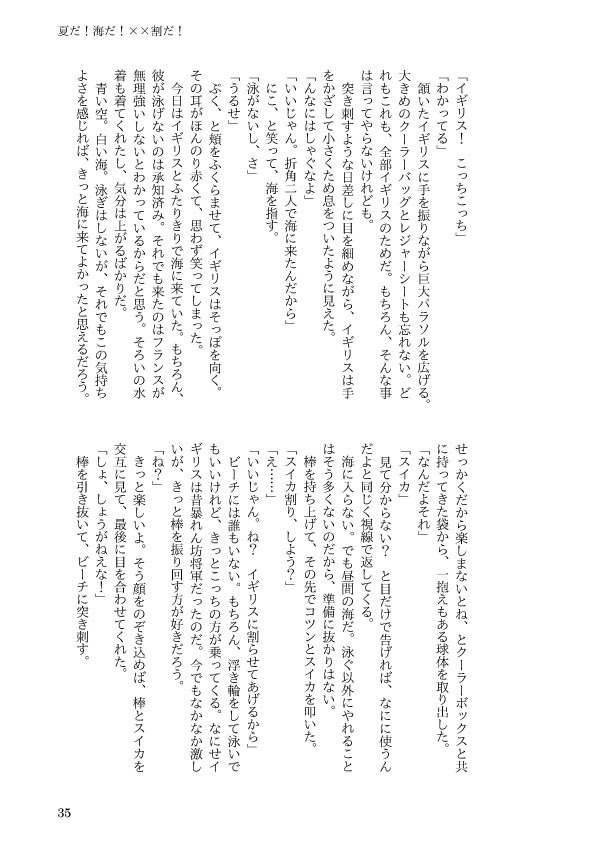 夏だ！海だ！××割だ！
「イギリス！　こっちこっち」
「わかってる」
　頷いたイギリスに手を振りながら巨大パラソルを広げる。
大きめのクーラーバッグとレジャーシートも忘れない。ど
れもこれも、全部イギリスのためだ。もちろん、そんな事
は言ってやらないけれども。
　突き刺すような日差しに目を細めながら、イギリスは手
をかざして小さくため息をついたように見えた。
「んなにはしゃぐなよ」
「いいじゃん。折角二人で海に来たんだから」
　にこ、と笑って、海を指す。
「泳がないし、さ」
「うるせ」
　ぷく、と頬をふくらませて、イギリスはそっぽを向く。
その耳がほんのり赤くて、思わず笑ってしまった。
　今日はイギリスとふたりきりで海に来ていた。もちろん、
彼が泳げないのは承知済み。それでも来たのはフランスが
無理強いしないとわかっているからだと思う。そろいの水
着も着てくれたし、気分は上がるばかりだ。
　青い空。白い海。泳ぎはしないが、それでもこの気持ち
よさを感じれば、きっと海に来てよかったと思えるだろう。
せっかくだから楽しまないとね、とクーラーボックスと共
に持ってきた袋から、一抱えもある球体を取り出した。
「なんだよそれ」
「スイカ」
　見て分からない？　と目だけで告げれば、なにに使うん
だよと同じく視線で返してくる。
　海に入らない。でも昼間の海だ。泳ぐ以外にやれること
はそう多くないのだから、準備に抜かりはない。
　棒を持ち上げて、その先でコツンとスイカを叩いた。
「スイカ割り、しよう？」
「え……」
「いいじゃん。ね？　イギリスに割らせてあげるから」
　ビーチには誰もいない。もちろん、浮き輪をして泳いで
もいいけれど、きっとこっちの方が乗ってくる。なにせイ
ギリスは昔暴れん坊将軍だったのだ。今でもなかなか激し
いが、きっと棒を振り回す方が好きだろう。
「ね？」
　きっと楽しいよ。そう顔をのぞき込めば、棒とスイカを
交互に見て、最後に目を合わせてくれた。
「しょ、しょうがねえな！」
　棒を引き抜いて、ビーチに突き刺す。
35